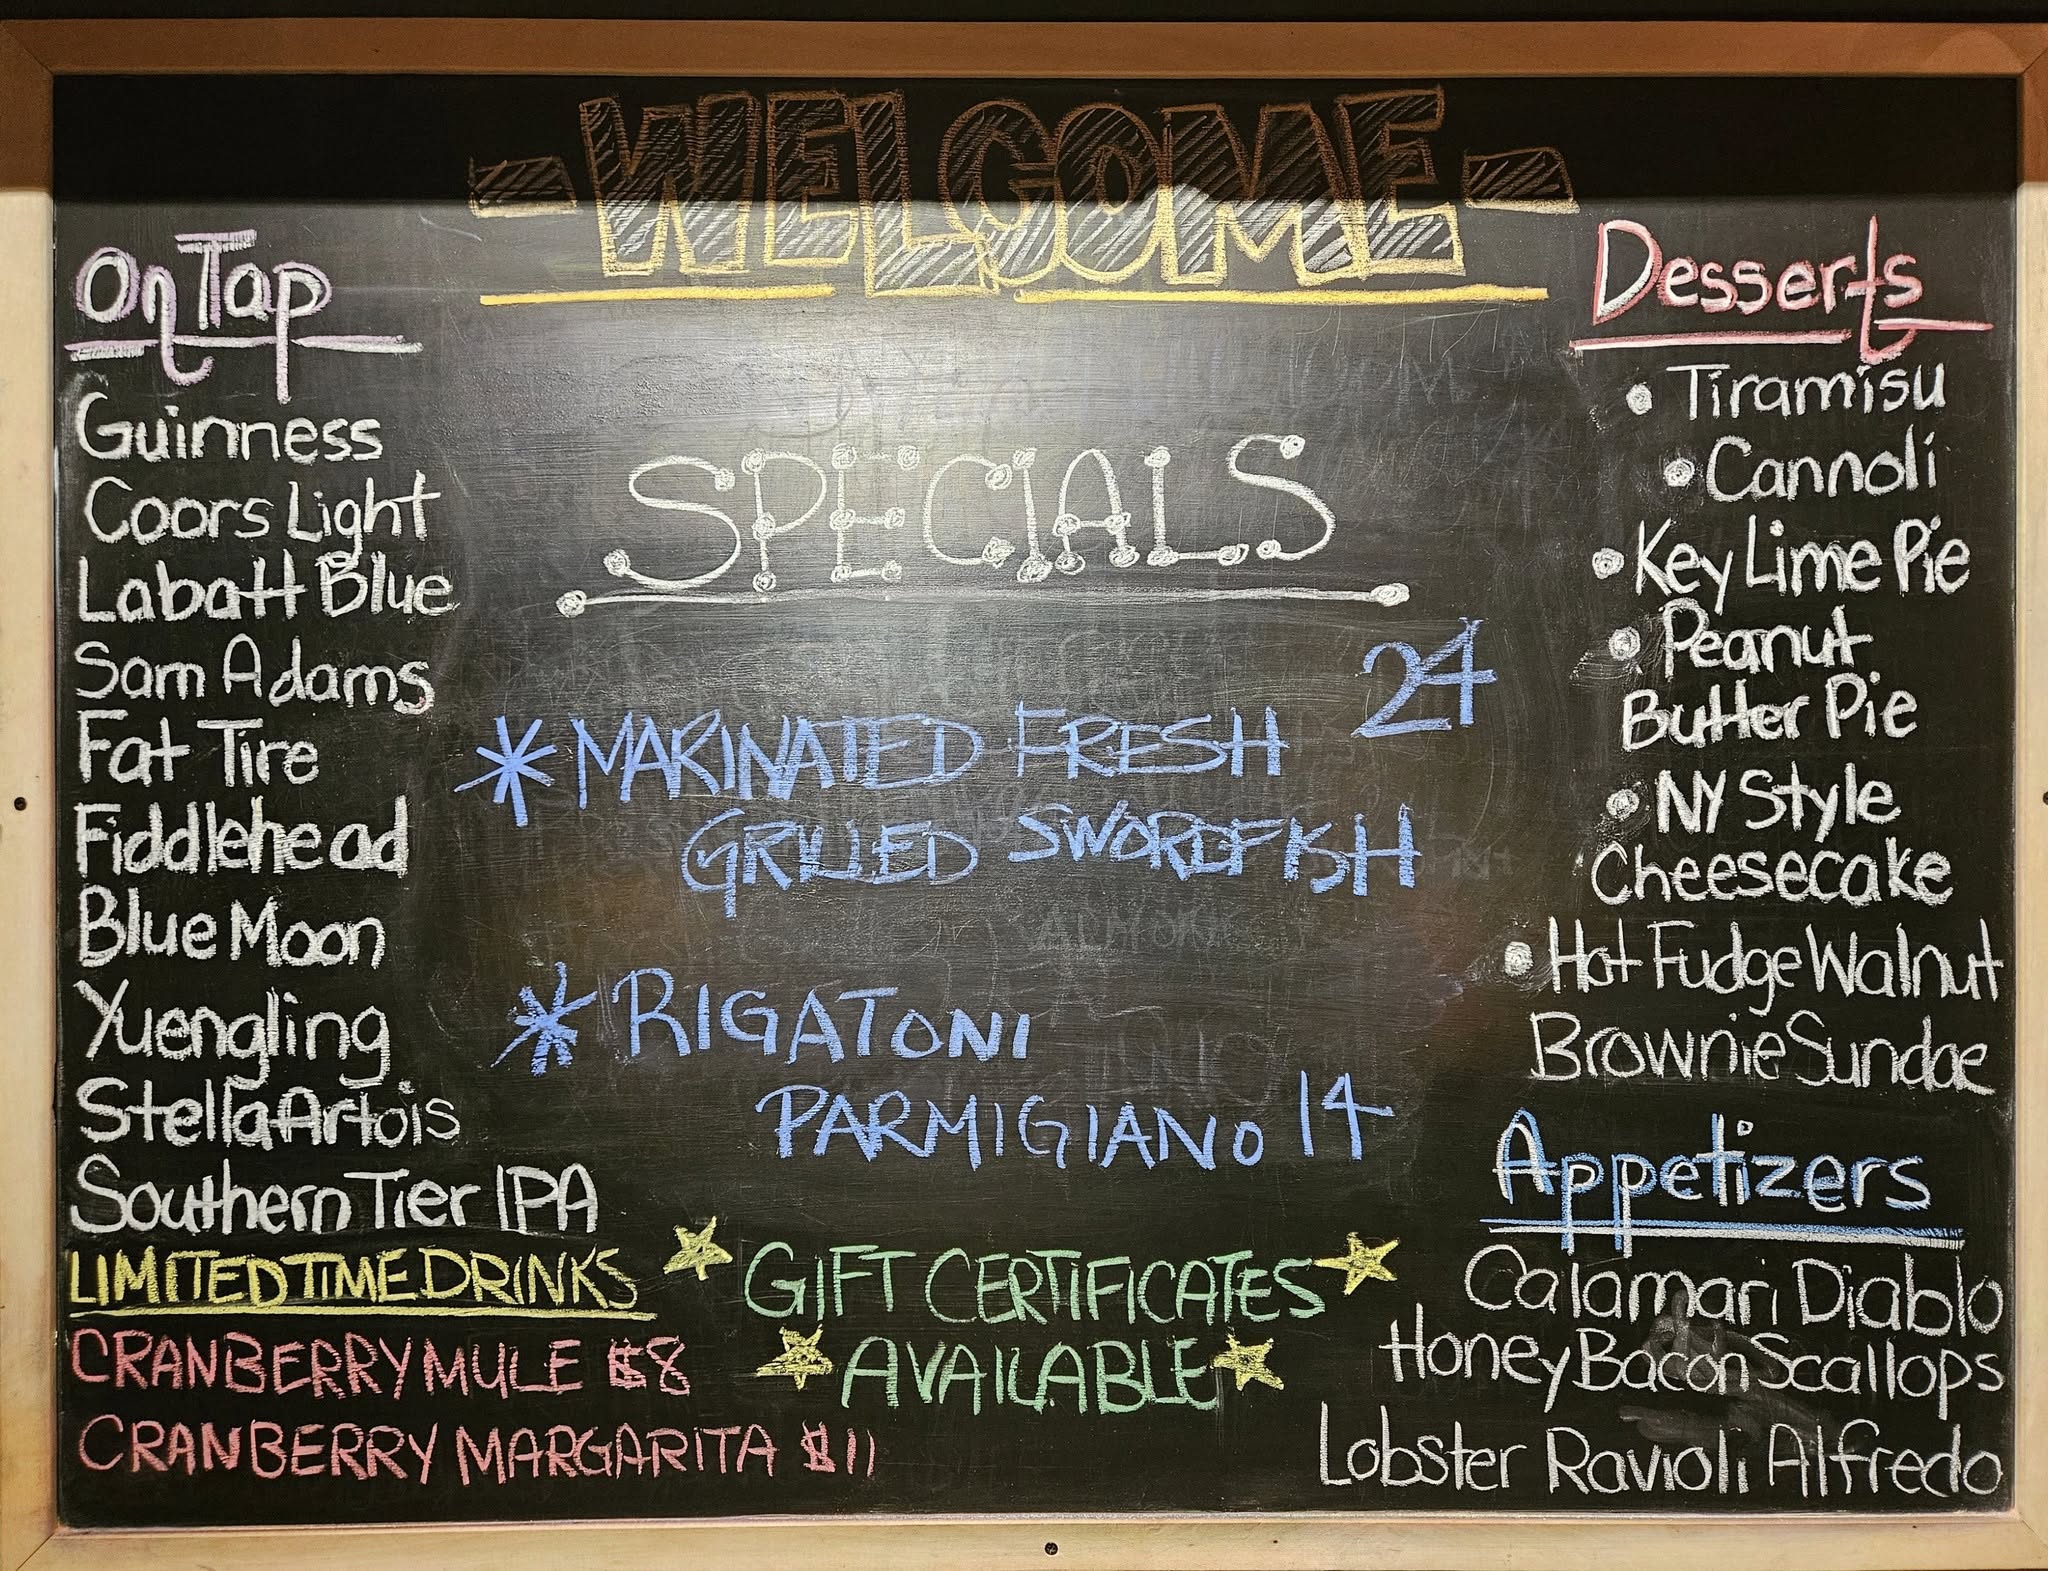 -WELCOME-
On Tap
Guinness
Coors Light
Labatt Blue
Sam Adams
Fat Tire
Fiddlehead
Blue Moon
Yuengling
Stella Artois
Southern Tier IPA
LIMITED TIME DRINKS
CRANBERRY MULE $8
CRANBERRY MARGARITA $11
SPECIALS
* MARINATED FRESH 24
GRILLED SWORDFISH
* RIGATONI
PARMIGIANO 14
GIFT CERTIFICATES
AVAILABLE
Desserts
• Tiramisu
• Cannoli
• Key Lime Pie
• Peanut
Butter Pie
• NY Style
Cheesecake
• Hot Fudge Walnut
Brownie Sundae
Appetizers
Calamari Diablo
Honey Bacon Scallops
Lobster Ravioli Alfredo